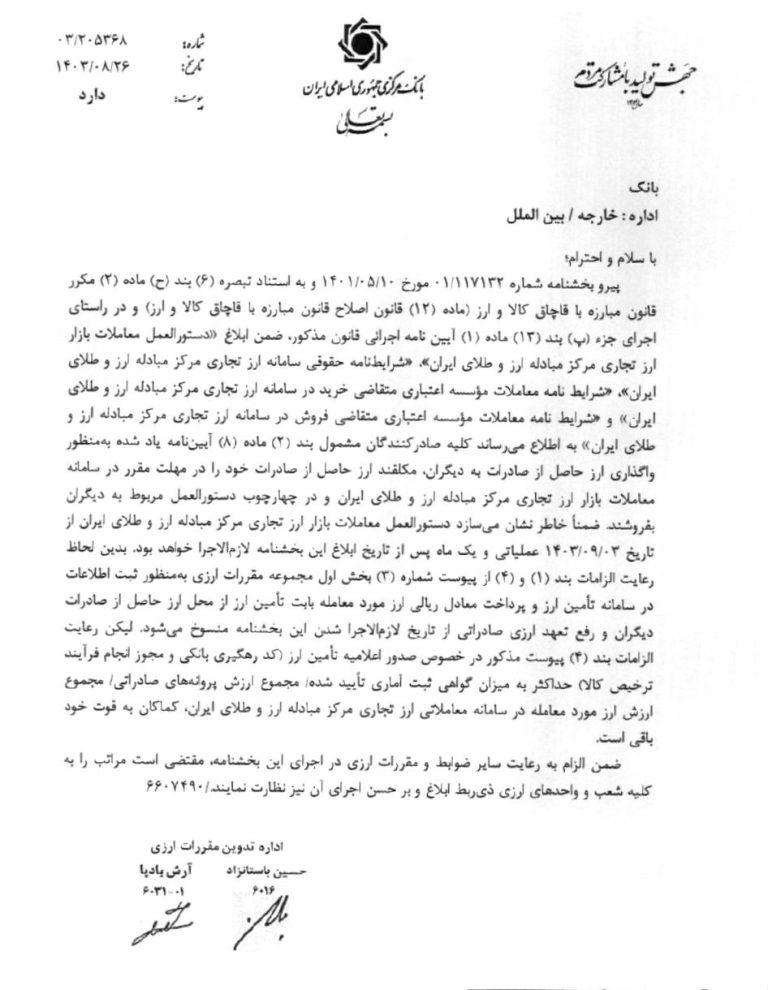 جهش تولید با مشارکت مردم
بانک مرکزی جمهوری اسلامی ایران
بسمه تعالی
شماره: ۰۳/۲۰۵۳۶۸
تاریخ: ۱۴۰۳/۰۸/۲۶
پیوست: دارد
بانک
اداره: خارجه / بین الملل
با سلام و احترام؛
پیرو بخشنامه شماره ۰۱/۱۱۷۱۳۲ مورخ ۱۴۰۱/۰۵/۱۰ و به استناد تبصره (۶) بند (ح) ماده (۲) مکرر
قانون مبارزه با قاچاق کالا و ارز (ماده (۱۲) قانون اصلاح قانون مبارزه با قاچاق کالا و ارز) و در راستای
اجرای جزء (پ) بند (۱۳) ماده (۱) آیین نامه اجرائی قانون مذکور، ضمن ابلاغ «دستورالعمل معاملات بازار
ارز تجاری مرکز مبادله ارز و طلای ایران»، «شرایطنامه حقوقی سامانه ارز تجاری مرکز مبادله ارز و طلای
ایران»، «شرایط نامه معاملات مؤسسه اعتباری متقاضی خرید در سامانه ارز تجاری مرکز مبادله ارز و طلای
ایران» و «شرایط نامه معاملات مؤسسه اعتباری متقاضی فروش در سامانه ارز تجاری مرکز مبادله ارز و
طلای ایران» به اطلاع می‌رساند کلیه صادرکنندگان مشمول بند (۲) ماده (۸) آیین‌نامه یاد شده به‌منظور
واگذاری ارز حاصل از صادرات به دیگران، مکلفند ارز حاصل از صادرات خود را در مهلت مقرر در سامانه
معاملات بازار ارز تجاری مرکز مبادله ارز و طلای ایران و در چهارچوب دستورالعمل مربوط به دیگران
بفروشند. ضمناً خاطر نشان می‌سازد دستورالعمل معاملات بازار ارز تجاری مرکز مبادله ارز و طلای ایران از
تاریخ ۱۴۰۳/۰۹/۰۳ عملیاتی و یک ماه پس از تاریخ ابلاغ این بخشنامه لازم‌الاجرا خواهد بود. بدین لحاظ
رعایت الزامات بند (۱) و (۴) از پیوست شماره (۳) بخش اول مجموعه مقررات ارزی به‌منظور ثبت اطلاعات
در سامانه تأمین ارز و پرداخت معادل ریالی ارز مورد معامله بابت تأمین ارز از محل ارز حاصل از صادرات
دیگران و رفع تعهد ارزی صادراتی از تاریخ لازم‌الاجرا شدن این بخشنامه منسوخ می‌شود. لیکن رعایت
الزامات بند (۴) پیوست مذکور در خصوص صدور اعلامیه تأمین ارز (کد رهگیری بانکی و مجوز انجام فرآیند
ترخیص کالا) حداکثر به میزان گواهی ثبت آماری تأیید شده/ مجموع ارزش پروانه‌های صادراتی/ مجموع
ارزش ارز مورد معامله در سامانه معاملاتی ارز تجاری مرکز مبادله ارز و طلای ایران، کماکان به قوت خود
باقی است.
ضمن الزام به رعایت سایر ضوابط و مقررات ارزی در اجرای این بخشنامه، مقتضی است مراتب را به
کلیه شعب و واحدهای ارزی ذی‌ربط ابلاغ و بر حسن اجرای آن نیز نظارت نمایند./۶۶۰۷۴۹۰
اداره تدوین مقررات ارزی
حسین باستانزاد آرش بادپا
۶۰۱۶ ۶۰۳۱-۰۱